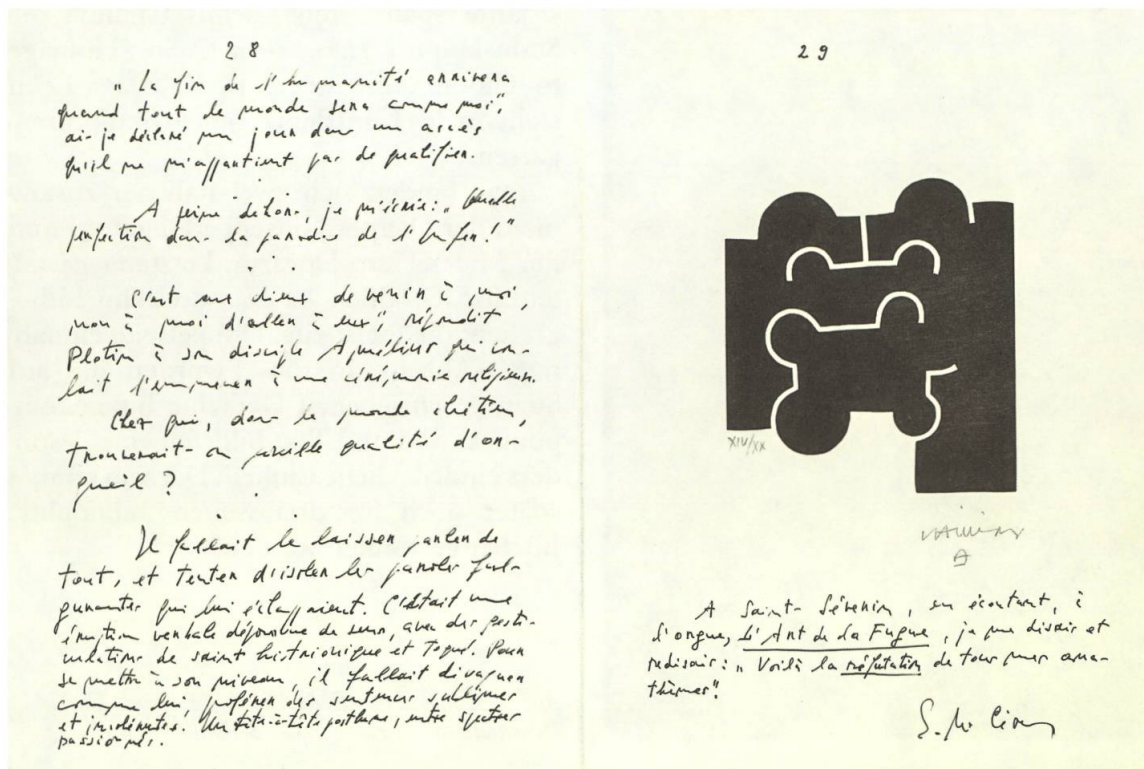 28
„ La fin de l'humanité arrivera
quand tout le monde sera comme moi",
ai-je déclaré un jour dans un accès
qu'il ne m'appartient pas de qualifier.
A peine dehors, je m'écrie: „ Quelle
perfection dans la parodie de l'Enfer!"
C'est aux dieux de venir à moi,
non à moi d'aller à eux", répondit
Plotin à son disciple Amélius qui vou-
lait l'emmener à une cérémonie religieuse.
Chez qui, dans le monde chrétien,
trouverait-on pareille qualité d'or-
gueil ?
Il fallait le laisser parler de
tout, et tenter d'isoler les paroles ful-
gurantes qui lui échappaient. C'était une
éruption verbale dépourvue de sens, avec des gesti-
culations de saint histrionique et toqué. Pour
se mettre à son niveau, il fallait divaguer
comme lui, proférer des sentences sublimes
et incohérentes. Un tête-à-tête posthume, entre spectres
passionnés.
29
XIV/XX
A Saint-Séverin, en écoutant, à
l'orgue, L'Art de la Fugue, je me disais et
redisais: „ Voilà la réfutation de tous mes ana-
thèmes".